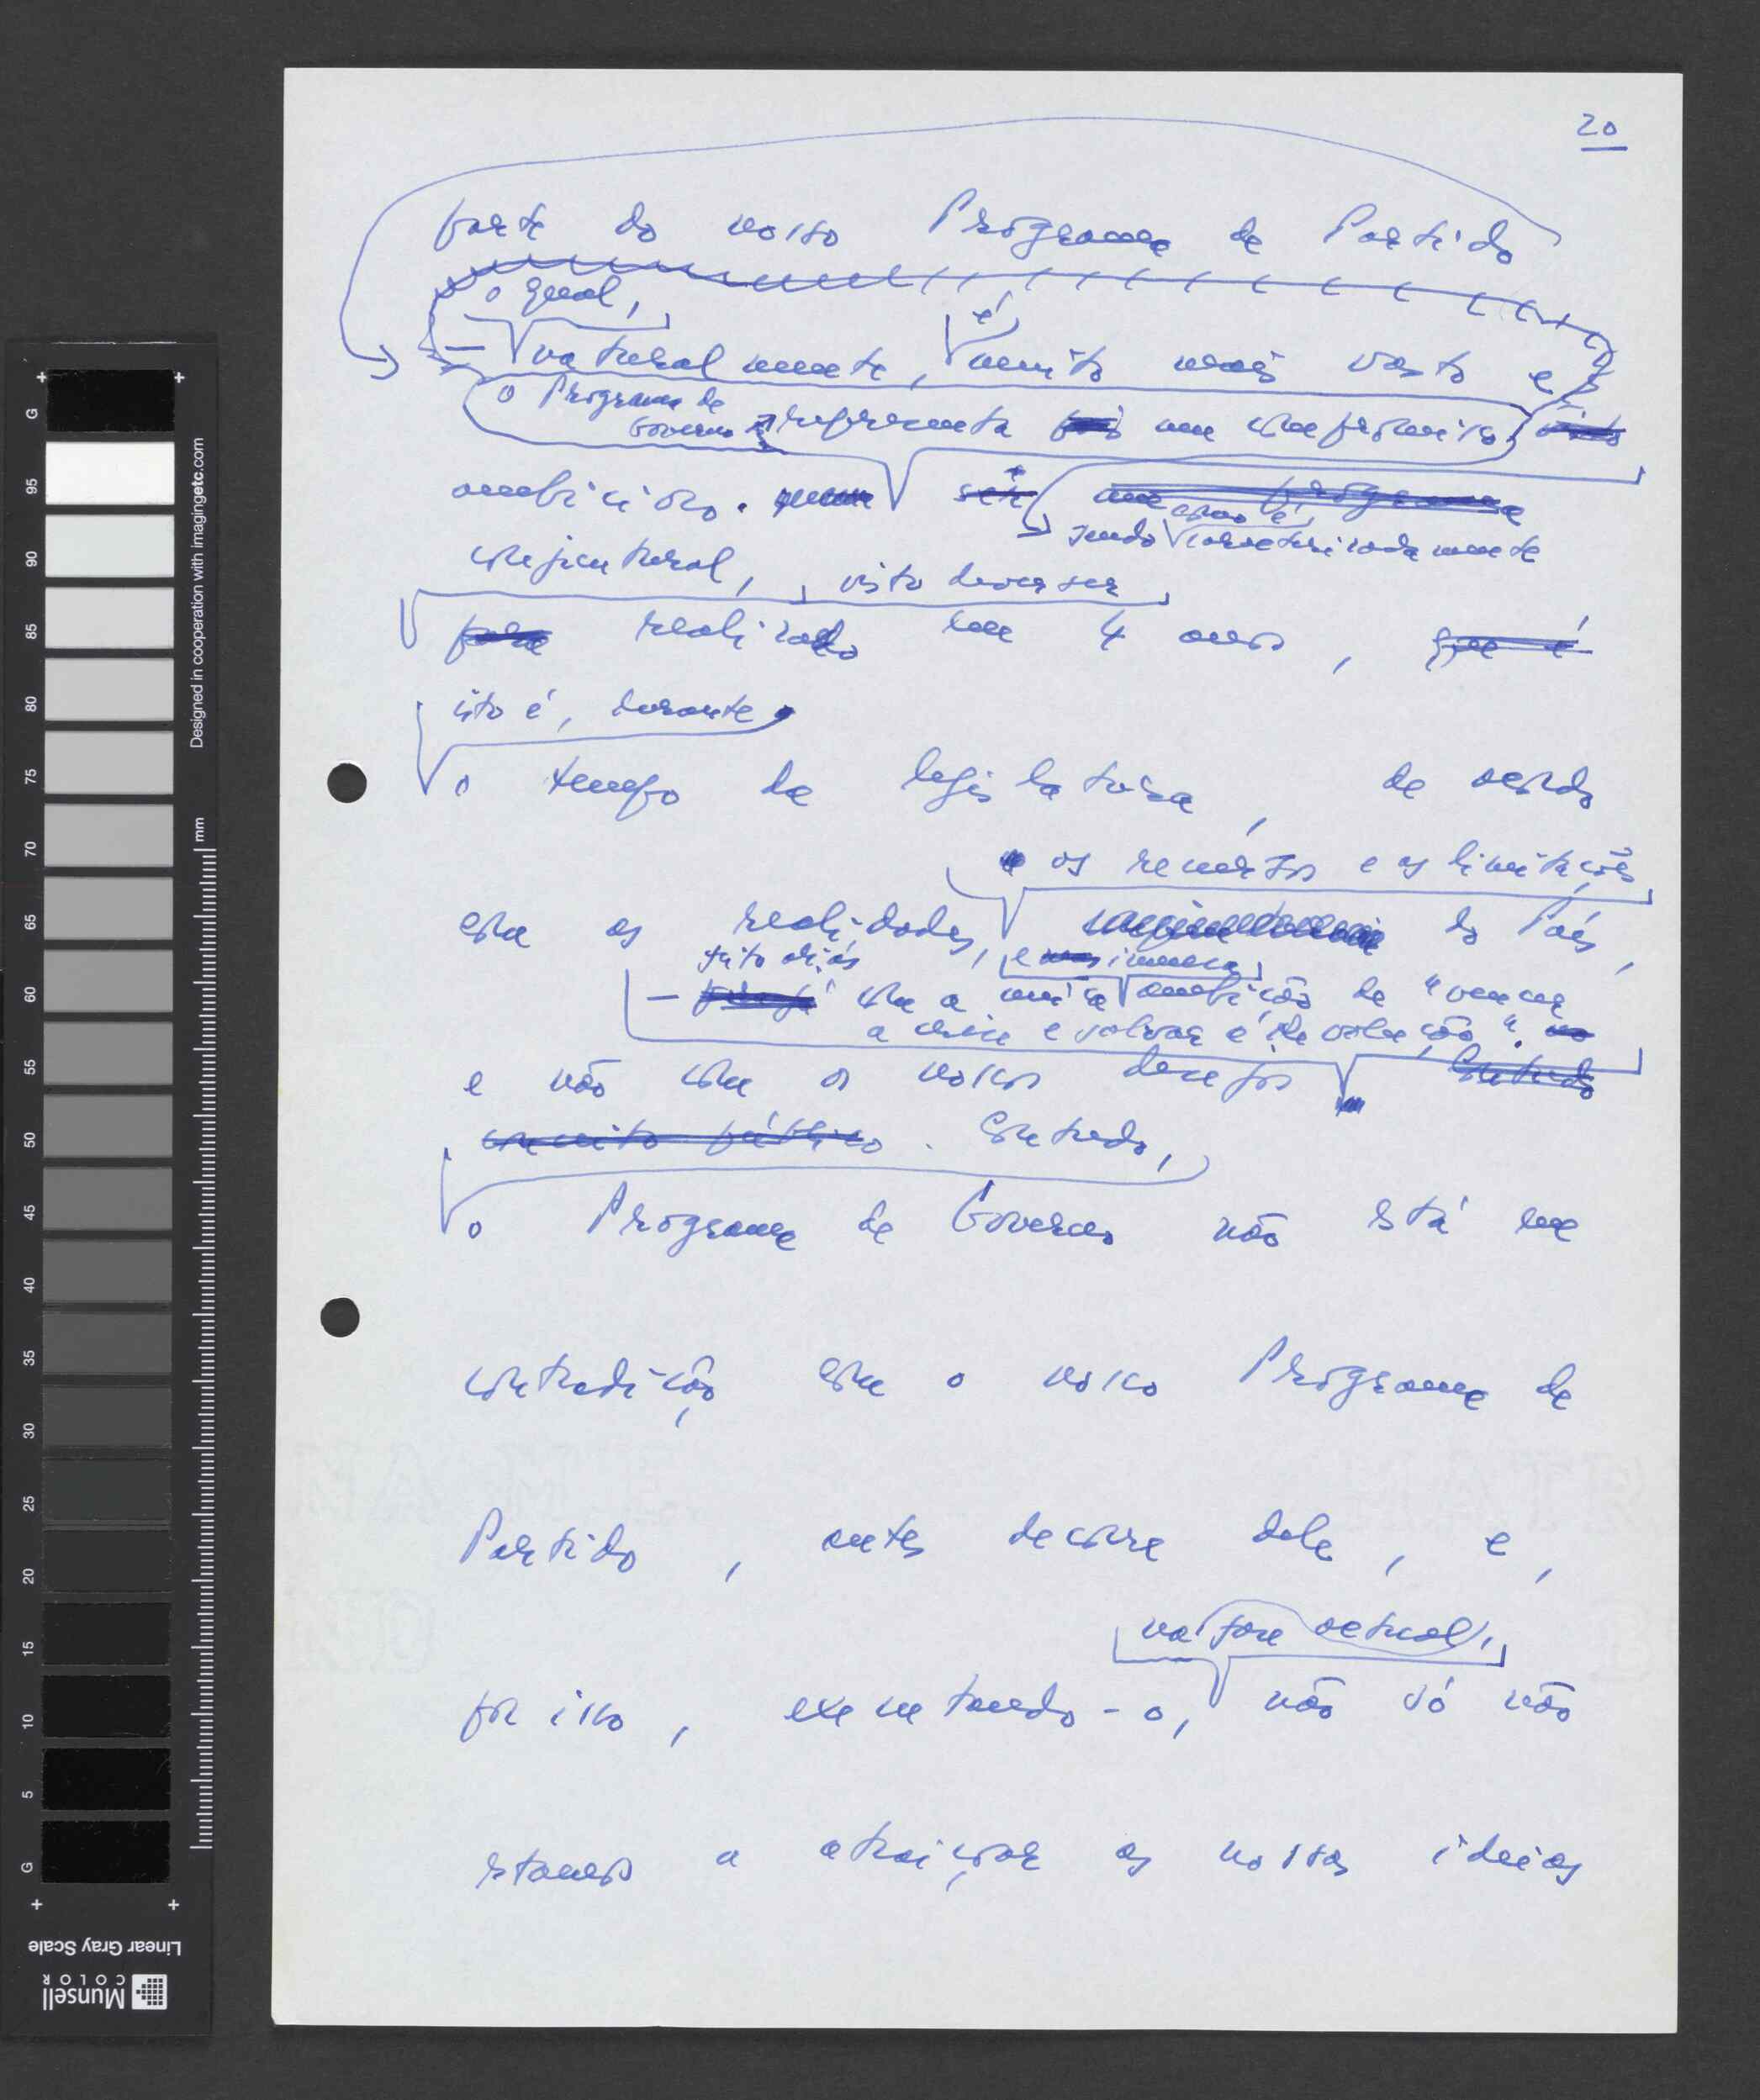 20
parte do nosso Programa de Partido
o qual,
é,
— naturalmente, muito mais vasto e
o Programa de
Governo representa um compromisso,
ambicioso.
como é,
sendo caracterizadamente
conjuntural, visto dever ser
para realizado em 4 anos, que é
isto é, durante
o tempo da legislatura, de acordo
os recursos e as limitações
com as realidades, do País,
feito aliás e imensa
— com a única ambição de "vencer
a crise e salvar a Revolução".
e não com os nossos desejos Contudo
. Contudo,
o Programa de Governo não está em
contradição com o nosso Programa de
Partido, antes decorre dele, e,
na fase actual,
por isso, executando-o, não só não
estamos a atraiçoar as nossas ideias
G
95
90
85
80
75
70
65
60
55
50
45
40
35
30
25
20
15
10
5
G
mm
Designed in cooperation with imagingetc.com
Linear Gray Scale
Munsell
COLOR